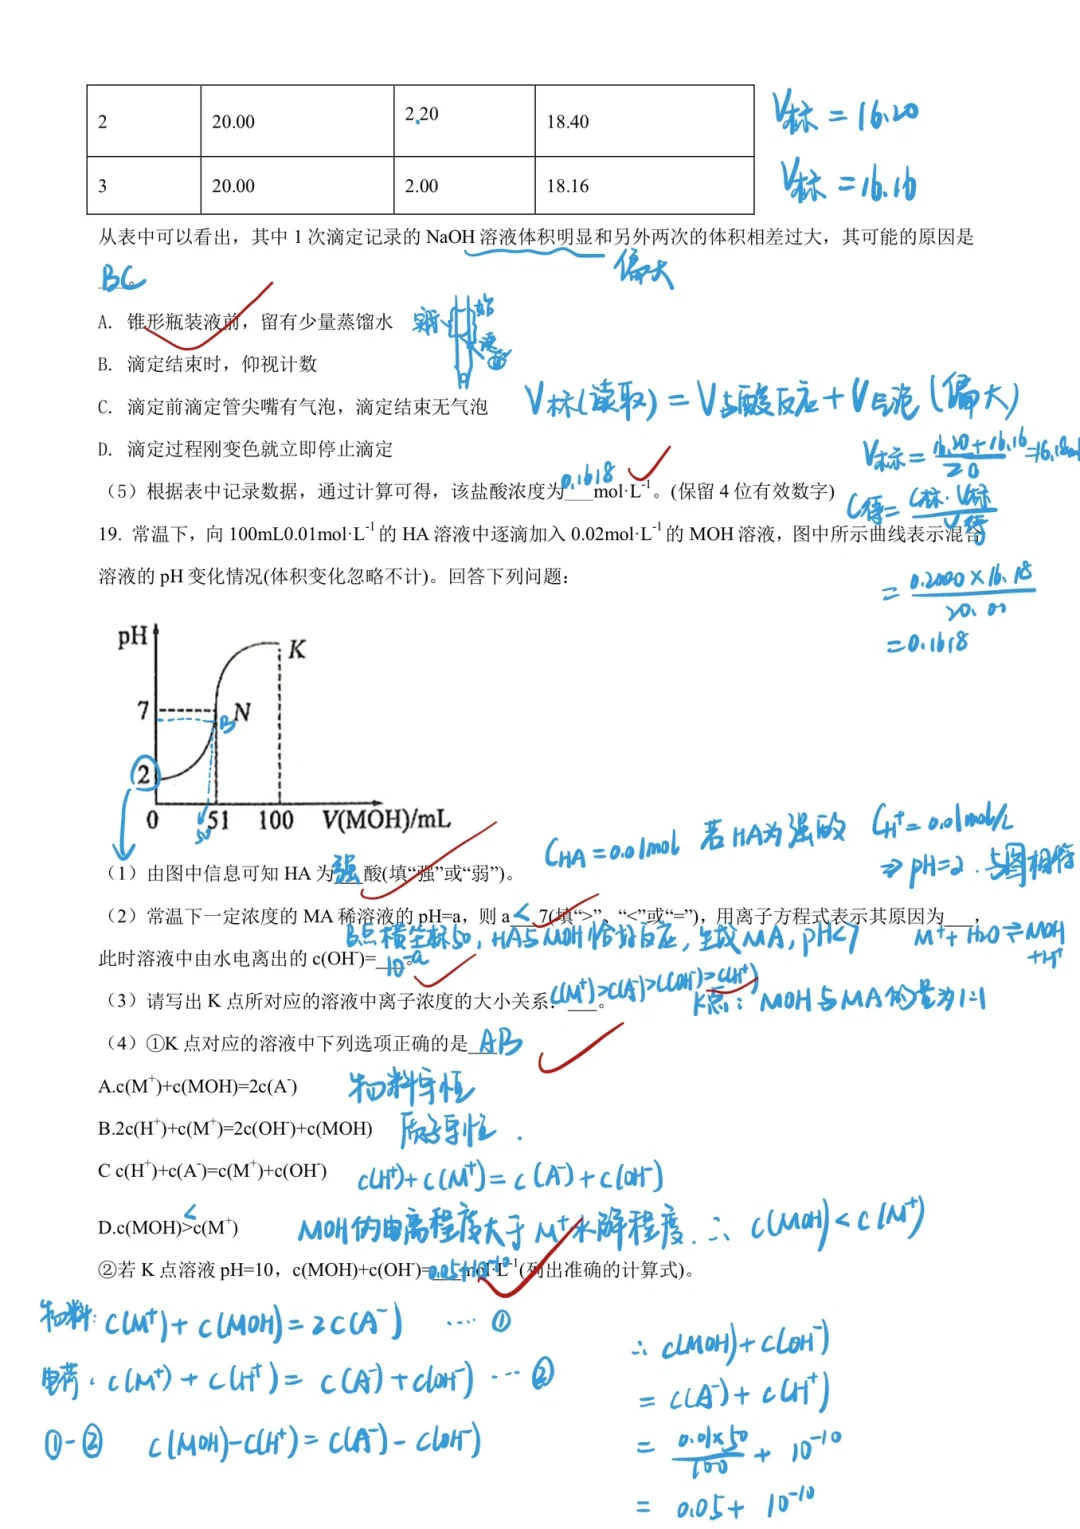 2 20.00 2.20 18.40 V标 = 16.20
3 20.00 2.00 18.16 V标 = 16.16
从表中可以看出，其中 1 次滴定记录的 NaOH 溶液体积明显和另外两次的体积相差过大，其可能的原因是
BC。 偏大
A. 锥形瓶装液前，留有少量蒸馏水
B. 滴定结束时，仰视计数
C. 滴定前滴定管尖嘴有气泡，滴定结束无气泡 V标(读取) = V与酸反应 + V气泡 (偏大)
D. 滴定过程刚变色就立即停止滴定
V标 = 16.20+16.16 / 20 = 16.18ml
（5）根据表中记录数据，通过计算可得，该盐酸浓度为 0.1618 mol·L⁻¹。(保留 4 位有效数字)
C待 = C标·V标 / V待
19. 常温下，向 100mL0.01mol·L⁻¹ 的 HA 溶液中逐滴加入 0.02mol·L⁻¹ 的 MOH 溶液，图中所示曲线表示混合
溶液的 pH 变化情况(体积变化忽略不计)。回答下列问题：
= 0.2000 × 16.18 / 20.00
= 0.1618
pH
K
7
B N
2
0 50 51 100 V(MOH)/mL
CHA = 0.01mol 若 HA为强酸 CH⁺ = 0.01mol/L
⇒ pH=2. 与图相符
（1）由图中信息可知 HA 为 强 酸(填“强”或“弱”)。
（2）常温下一定浓度的 MA 稀溶液的 pH=a，则 a < 7(填“>”、“<”或“=”)，用离子方程式表示其原因为___，
B点横坐标50，HA与MOH恰好反应，生成MA，pH<7 M⁺+H₂O⇌MOH+H⁺
此时溶液中由水电离出的 c(OH⁻)= 10⁻ᵃ。
（3）请写出 K 点所对应的溶液中离子浓度的大小关系：c(M⁺)>c(A⁻)>c(OH⁻)>c(H⁺)。
K点：MOH与MA的量为1:1
（4）①K 点对应的溶液中下列选项正确的是 AB
A.c(M⁺)+c(MOH)=2c(A⁻) 物料守恒
B.2c(H⁺)+c(M⁺)=2c(OH⁻)+c(MOH) 质子守恒.
C c(H⁺)+c(A⁻)=c(M⁺)+c(OH⁻) c(H⁺)+c(M⁺)=c(A⁻)+c(OH⁻)
D.c(MOH)>c(M⁺) < MOH的电离程度大于M⁺水解程度. ∴ c(MOH)<c(M⁺)
②若 K 点溶液 pH=10，c(MOH)+c(OH⁻)= 0.05+10⁻¹⁰ mol·L⁻¹(列出准确的计算式)。
物料：c(M⁺)+c(MOH)=2c(A⁻) ···· ①
电荷：c(M⁺)+c(H⁺)=c(A⁻)+c(OH⁻) ··· ②
①-② c(MOH)-c(H⁺)=c(A⁻)-c(OH⁻)
∴ c(MOH)+c(OH⁻)
= c(A⁻)+c(H⁺)
= 0.01×50 / 100 + 10⁻¹⁰
= 0.05 + 10⁻¹⁰